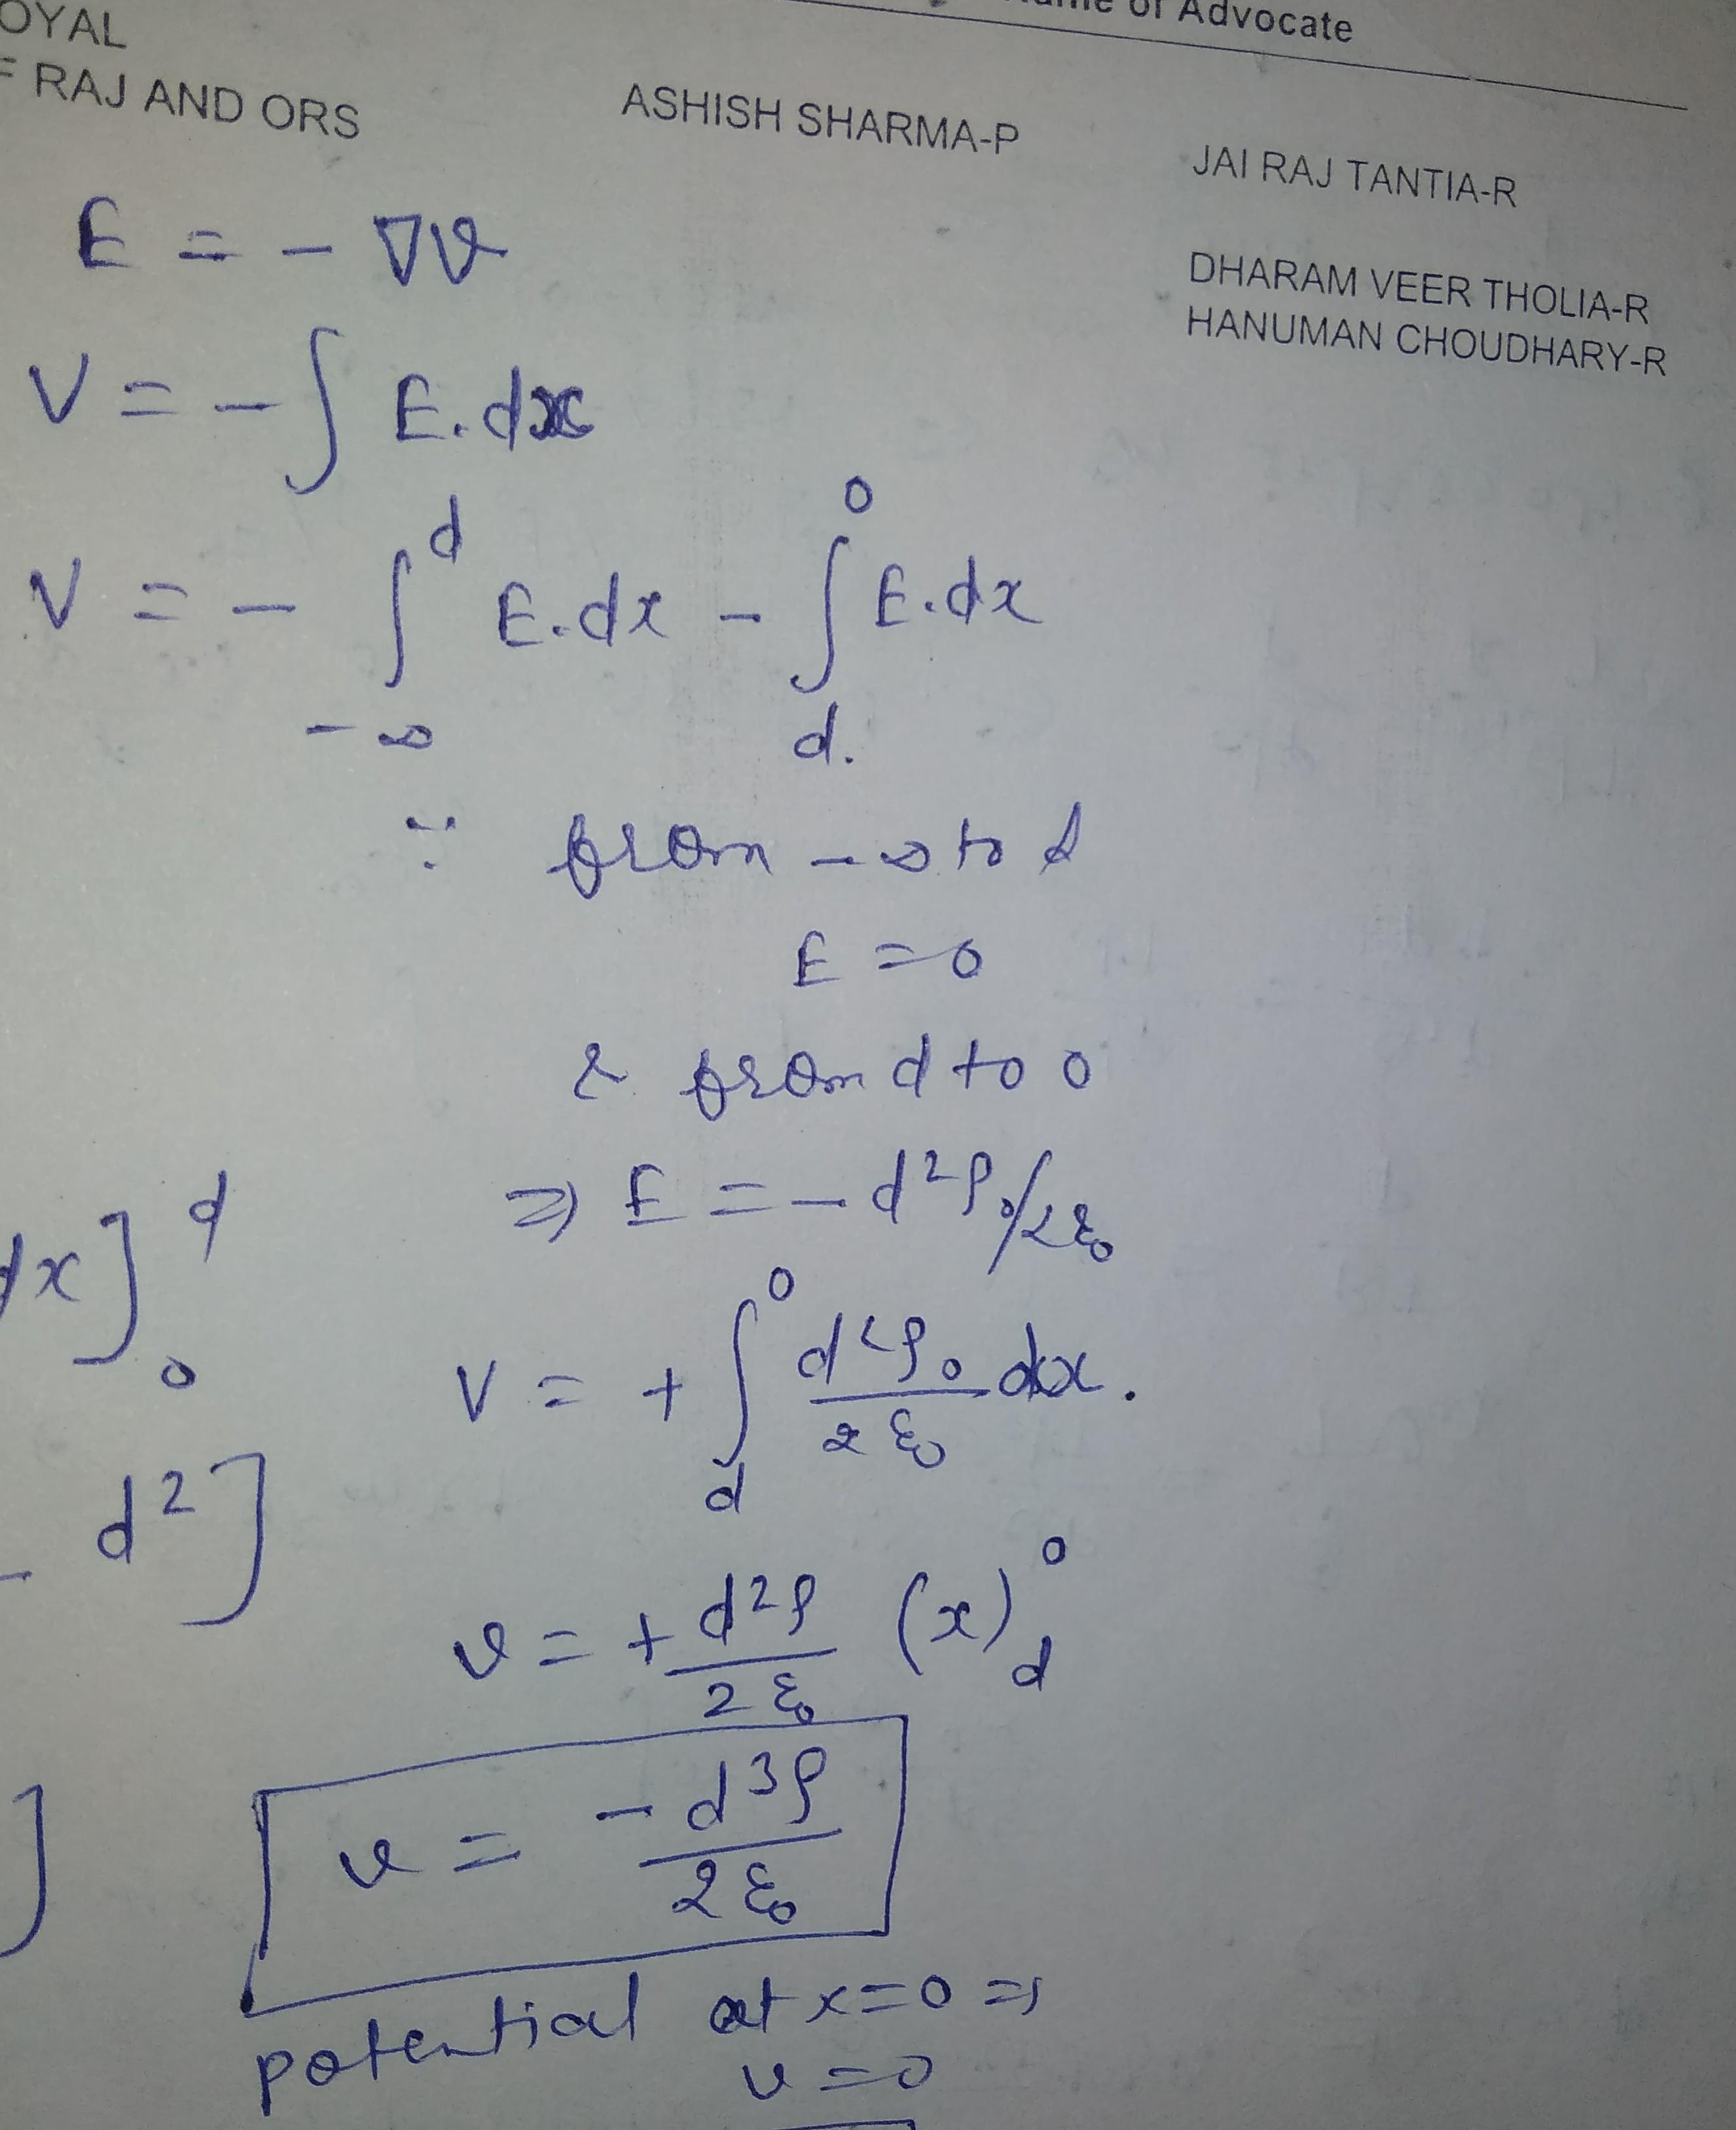 OYAL
Name of Advocate
F RAJ AND ORS
ASHISH SHARMA-P
JAI RAJ TANTIA-R
DHARAM VEER THOLIA-R
HANUMAN CHOUDHARY-R
E = - ∇V
V = - ∫ E.dx
V = - ∫_{-∞}^{d} E.dx - ∫_{d.}^{0} E.dx
∵ from -∞ to d
E = 0
& from d to 0
⇒ E = - d²ρ₀/2ε₀
dx]₀^d
V = + ∫_{d}^{0} d²ρ₀/2ε₀ dx.
- d²]
V = + d²ρ/2ε₀ (x)_{d}^{0}
]
V = -d³ρ/2ε₀
potential at x=0 ⇒
V=0